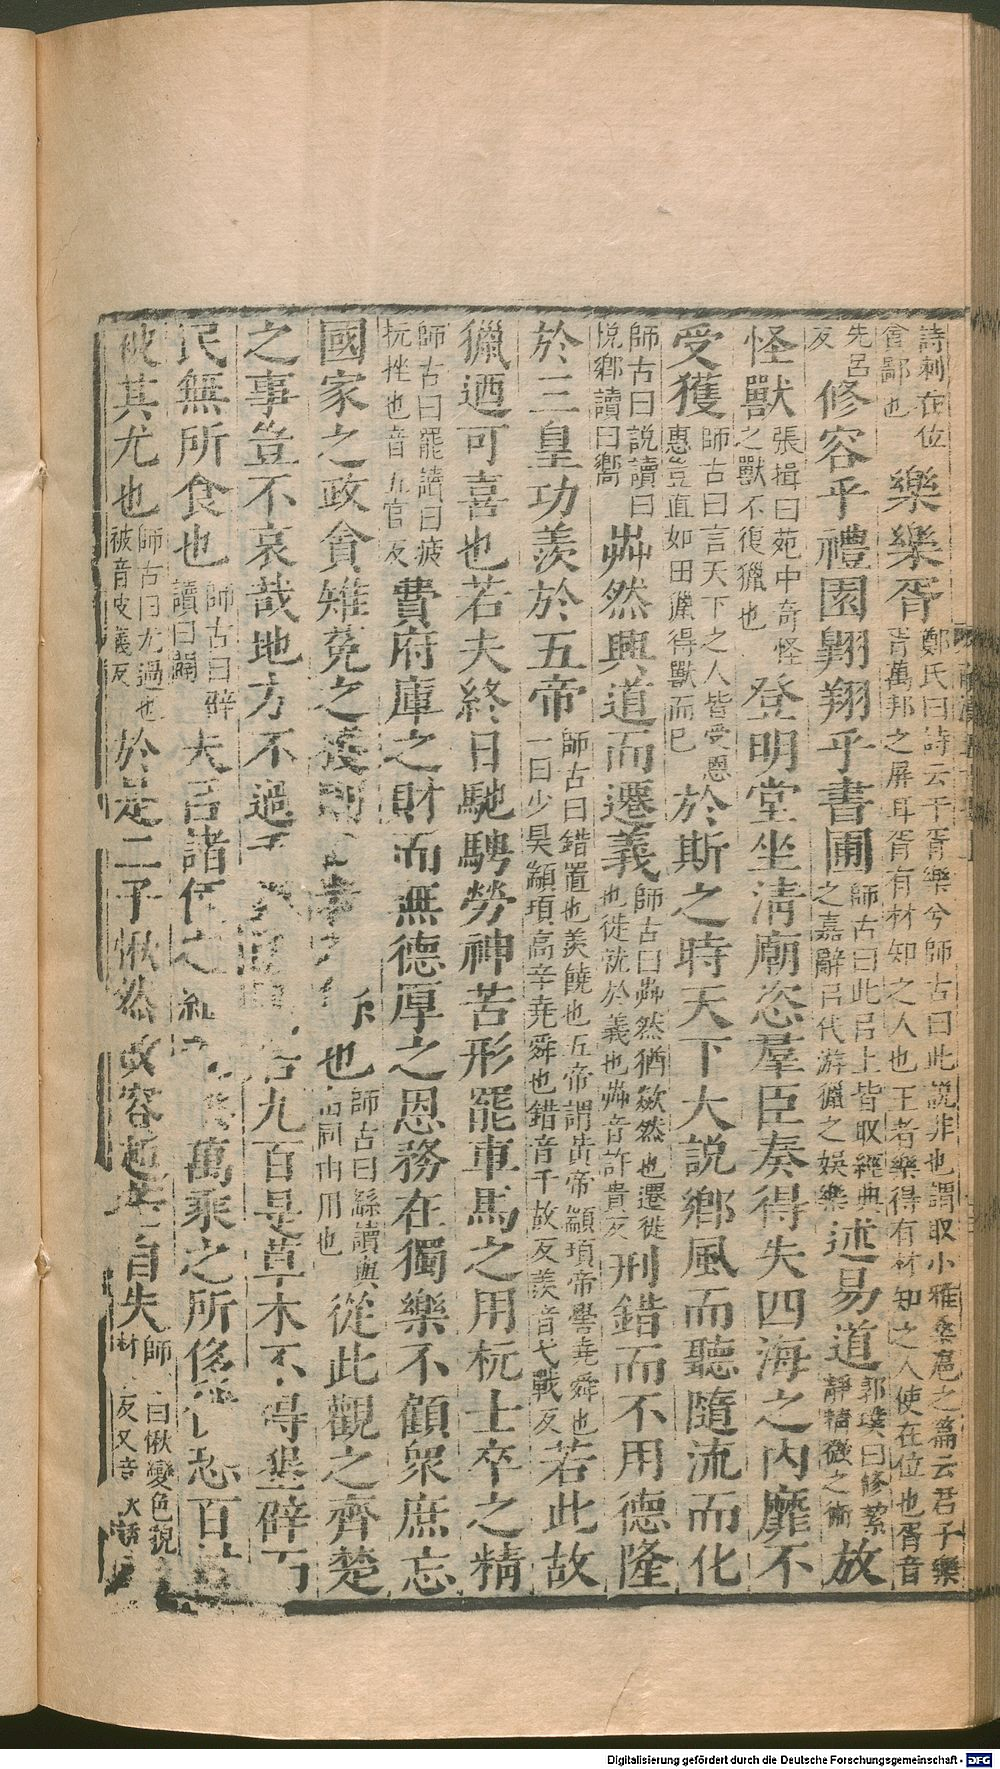 詩刺在位
會鄙也樂樂胥鄭氏曰詩云于胥樂兮師古曰此說非也謂取小雅桑扈之篇云君子樂
胥萬邦之屏耳胥有材知之人也王者樂得有材知之人使在位也胥音
先呂
反修容乎禮園翺翔乎書圃師古曰此㠯上皆取經典
之嘉辭㠯代游獵之娛樂述易道郭璞曰修絜
靜精微之術放
怪獸張揖曰苑中奇怪
之獸不復獵也登明堂坐清廟恣羣臣奏得失四海之內靡不
受獲師古曰言天下之人皆受恩
惠豈直如田獵得獸而已於斯之時天下大說鄉風而聽隨流而化
師古曰說讀曰
悅鄉讀曰嚮芔然興道而遷義師古曰芔然猶歘然也遷徙
也徙就於義也芔音許貴反刑錯而不用德隆
於三皇功羨於五帝師古曰錯置也羨饒也五帝謂黃帝顓頊帝嚳堯舜也
一曰少昊顓頊高辛堯舜也錯音千故反羨音弋戰反若此故
獵迺可喜也若夫終日馳騁勞神苦形罷車馬之用杬士卒之精
師古曰罷讀曰疲
抏挫也音五官反費府庫之財而無德厚之恩務在獨樂不顧衆庶忘
國家之政貪雉菟之獲 也師古曰繇讀與
同由用也從此觀之齊楚
之事豈不哀哉地方不過 九百是草木不得墾辟而
民無所食也師古曰辟
讀曰闢夫㠯諸侯之 萬乘之所侈 恐百
被其尤也師古曰尤過也
被音皮義反於是二子愀然改容 自失師 曰愀變色貌
材 反又音